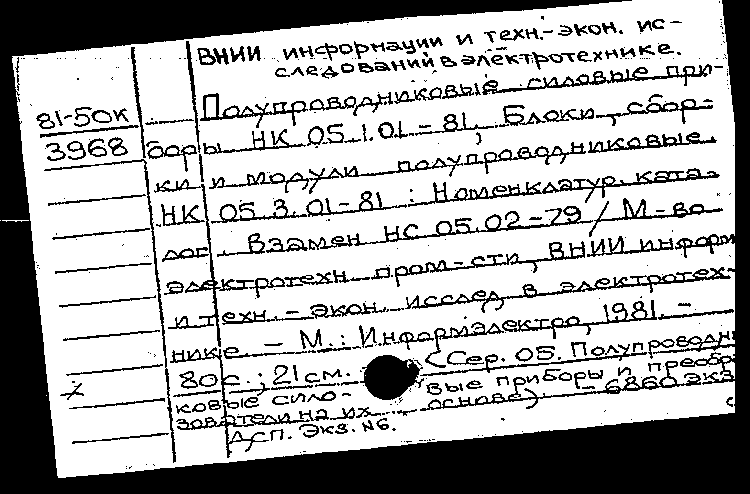 ВНИИ информации и техн.-экон. ис-
следований в электротехнике.
81-50к
3968
Полупроводниковые силовые при-
боры НК 05.1.01-81, Блоки, сбор-
ки и модули полупроводниковые.
НК 05.3.01-81 : Номенклатур. ката-
лог. Взамен НС 05.02-79 / М-во
электротехн. пром-сти, ВНИИ информ.
и техн.-экон. исслед. в электротех-
нике. - М.: Информэлектро, 1981. -
80 с.; 21 см. (Сер. 05. Полупроводни
ковые сило- вые приборы и преобра
зователи на их основе) - 6860 экз
ДСП. Экз. №6.